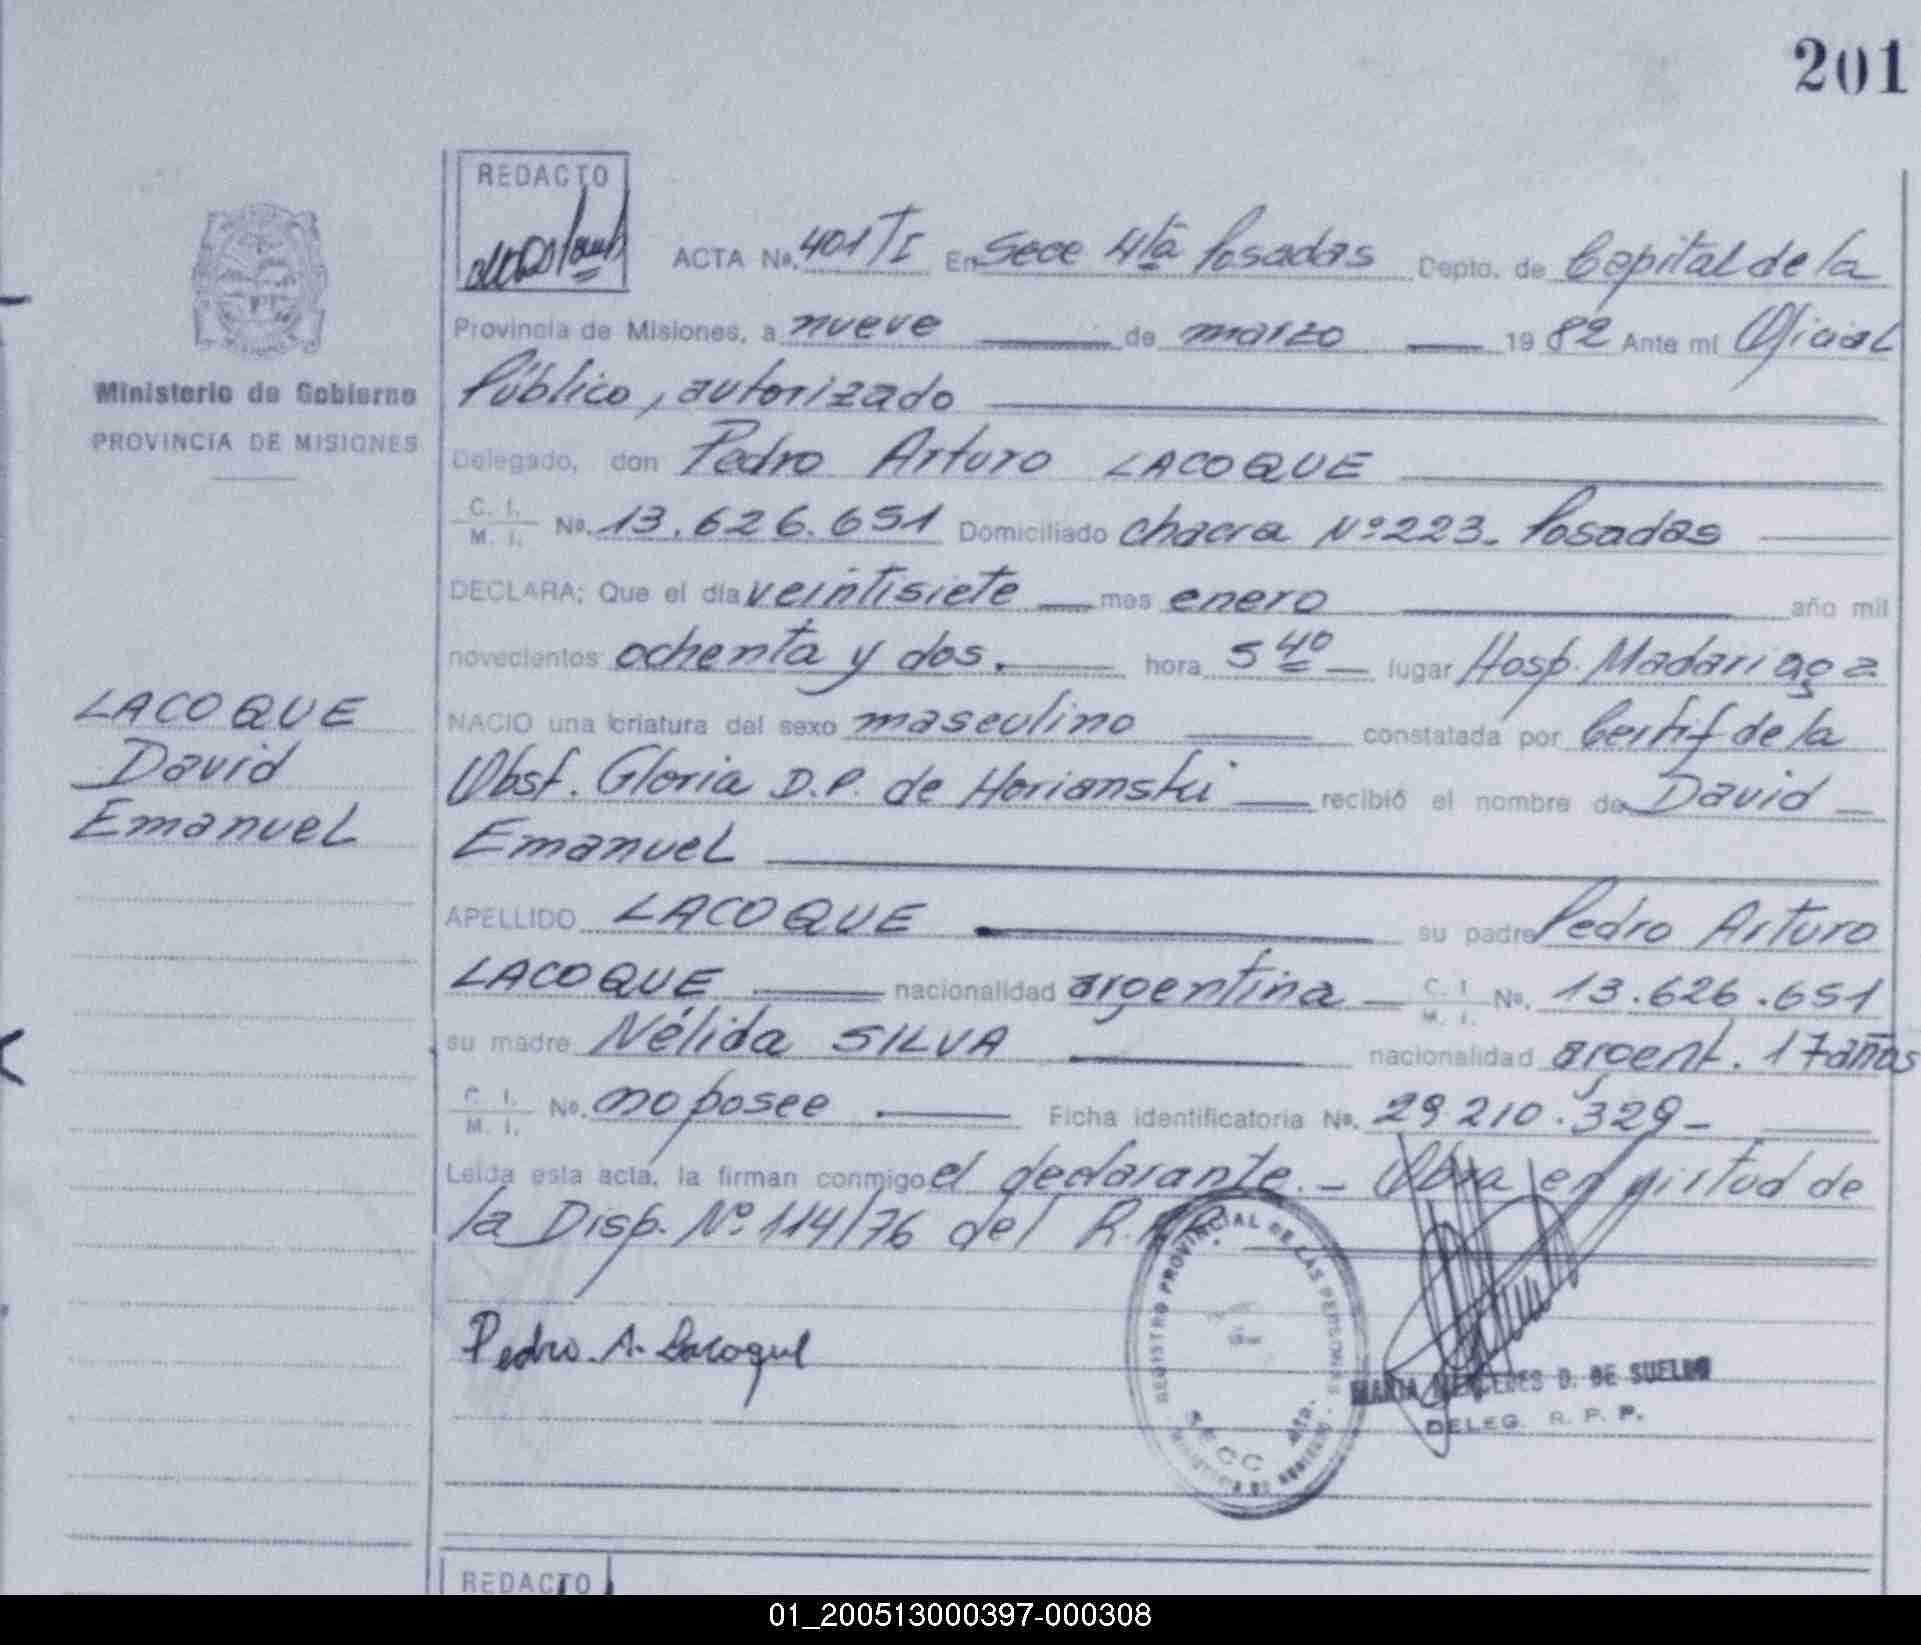 201
REDACTO
ACTA No. 401 T I En Secc 4ta Posadas Depto. de Capital de la
Provincia de Misiones, a nueve de marzo 1982 Ante mi Oficial
Ministerio de Gobierno
PROVINCIA DE MISIONES
Público, autorizado
Delegado, don Pedro Arturo LACOQUE
C. I. M. I. No. 13.626.651 Domiciliado chacra Nº 223. Posadas
DECLARA: Que el día veintisiete mes enero año mil
novecientos ochenta y dos. hora 5 40 lugar Hosp. Madariaga
LACOQUE
David
Emanuel
NACIO una criatura del sexo masculino constatada por Certif de la
Obst. Gloria D.P. de Horianski recibió el nombre de David
Emanuel
APELLIDO LACOQUE su padre Pedro Arturo
LACOQUE nacionalidad argentina C. I. M. I. No. 13.626.651
su madre Nélida SILVA nacionalidad argent. 17 años
C. I. M. I. No. no posee Ficha identificatoria No. 29.210.329-
Leída esta acta, la firman conmigo el declarante.- Obra en virtud de
la Disp. Nº 114/76 del R.P.P.
Pedro A. Lacoque
REGISTRO PROVINCIAL DE LAS PERSONAS
SECC 4ta.
MINISTERIO DE GOBIERNO
MARIA MERCEDES D. DE SUELDO
DELEG. R. P. P.
REDACTO
01_200513000397-000308